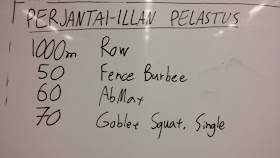 PERJANTAI-ILLAN PELASTUS
1000m Row
50 Fence Burbee
60 AbMat
70 Goblet Squat, Single